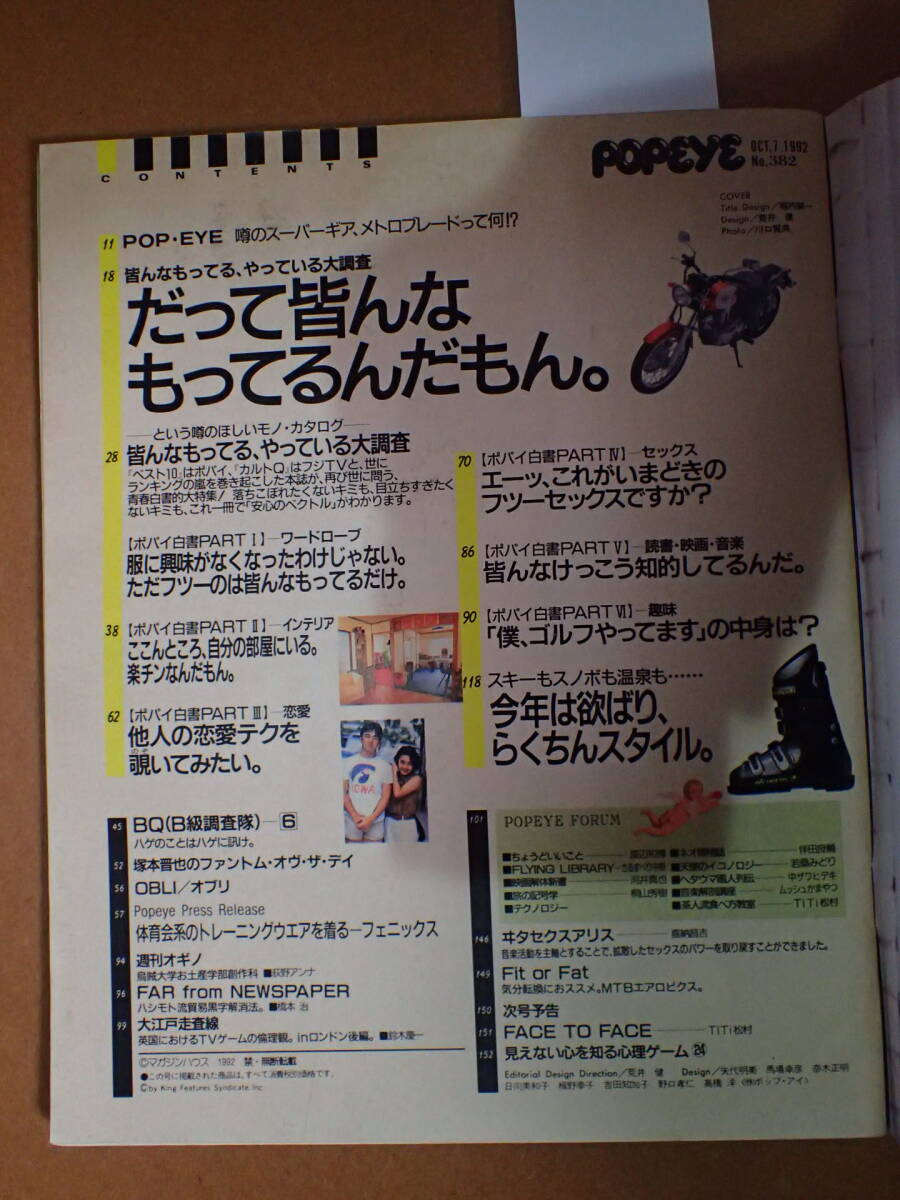 CONTENTS
POPEYE
OCT,7,1992
No.382
COVER
Title Design／堀内誠一
Design／荒井 健
Photo／川口賢典
11 POP・EYE 噂のスーパーギア、メトロブレードって何!?
18 皆んなもってる、やっている大調査
だって皆んな
もってるんだもん。
──という噂のほしいモノ・カタログ──
28 皆んなもってる、やっている大調査
「ベスト10」はポパイ、「カルトQ」はフジTVと、世に
ランキングの嵐を巻き起こした本誌が、再び世に問う、
青春白書的大特集! 落ちこぼれたくないキミも、目立ちすぎたく
ないキミも、これ一冊で「安心のベクトル」がわかります。
【ポパイ白書PART Ⅰ】─ワードローブ
服に興味がなくなったわけじゃない。
ただフツーのは皆んなもってるだけ。
38 【ポパイ白書PART Ⅱ】─インテリア
ここんところ、自分の部屋にいる。
楽チンなんだもん。
62 【ポパイ白書PART Ⅲ】─恋愛
他人の恋愛テクを
覗いてみたい。
のぞ
IOWA
70 【ポパイ白書PART Ⅳ】─セックス
エーッ、これがいまどきの
フツーセックスですか?
86 【ポパイ白書PART Ⅴ】─読書・映画・音楽
皆んなけっこう知的してるんだ。
90 【ポパイ白書PART Ⅵ】─趣味
「僕、ゴルフやってます」の中身は?
118 スキーもスノボも温泉も……
今年は欲ばり、
らくちんスタイル。
45 BQ(B級調査隊)─6
ハゲのことはハゲに訊け。
52 塚本晋也のファントム・オヴ・ザ・デイ
56 OBLI／オブリ
57 Popeye Press Release
体育会系のトレーニングウエアを着る─フェニックス
94 週刊オギノ
烏賊大学お土産学部創作科 ■荻野アンナ
96 FAR from NEWSPAPER
ハシモト流貿易黒字解消法。■橋本 治
99 大江戸走査線
英国におけるTVゲームの倫理観。inロンドン後編。■鈴木慶一
©マガジンハウス 1992 禁・無断転載
●この号に掲載された商品は、すべて消費税別価格です。
©by King Features Syndicate Inc
101 POPEYE FORUM
■ちょうどいいこと─
■FLYING LIBRARY─
■映画解体新書─河井真也
■旅の記号学─桐山秀樹
■テクノロジー
■ネオ闇雑誌─伴田良輔
■天使のイコノロジー─若桑みどり
■ヘタウマ画人列伝─中ザワヒデキ
■音楽解剖講座─ムッシュかまやつ
■茶人流食べ方教室─TITI松村
146 ヰタセクスアリス─喜納昌吉
音楽活動を主軸とすることで、拡散したセックスのパワーを取り戻すことができました。
149 Fit or Fat
気分転換におススメ。MTBエアロビクス。
150 次号予告
151 FACE TO FACE─TITI松村
152 見えない心を知る心理ゲーム24
Editorial Design Direction／荒井 健 Design／矢代明美 馬場幸彦 奈木正明
日向美和子 板野幸子 吉田知加子 野口孝仁 高橋 洋 (㈱ポップ・アイ)